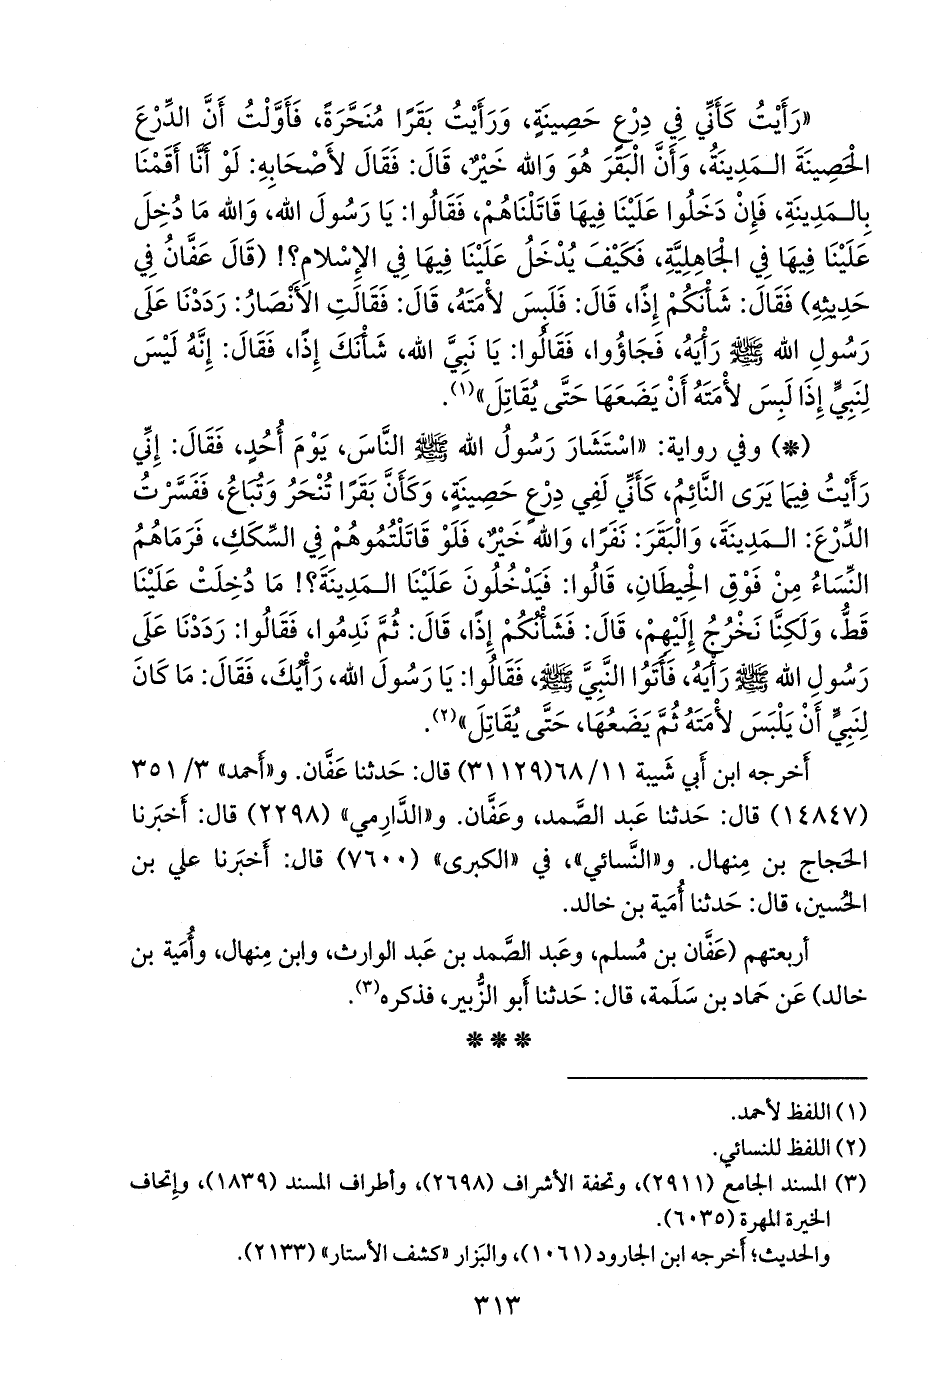 «رَأَيْتُ كَأَنِّي فِي دِرْعٍ حَصِينَةٍ، وَرَأَيْتُ بَقَرًا مُنَحَّرَةً، فَأَوَّلْتُ أَنَّ الدِّرْعَ
الْحَصِينَةَ الـمَدِينَةُ، وَأَنَّ الْبَقَرَ هُوَ وَالله خَيْرٌ، قَالَ: فَقَالَ لأَصْحَابِهِ: لَوْ أَنَّا أَقَمْنَا
بِالـمَدِينَةِ، فَإِنْ دَخَلُوا عَلَيْنَا فِيهَا قَاتَلْنَاهُمْ، فَقَالُوا: يَا رَسُولَ الله، وَالله مَا دُخِلَ
عَلَيْنَا فِيهَا فِي الْجَاهِلِيَّةِ، فَكَيْفَ يُدْخَلُ عَلَيْنَا فِيهَا فِي الإِسْلَامِ؟! (قَالَ عَفَّانُ فِي
حَدِيثِهِ) فَقَالَ: شَأْنَكُمْ إِذًا، قَالَ: فَلَبِسَ لأْمَتَهُ، قَالَ: فَقَالَتِ الأَنْصَارُ: رَدَدْنَا عَلَى
رَسُولِ الله ﷺ رَأْيَهُ، فَجَاؤُوا، فَقَالُوا: يَا نَبِيَّ الله، شَأْنَكَ إِذًا، فَقَالَ: إِنَّهُ لَيْسَ
لِنَبِيٍّ إِذَا لَبِسَ لأْمَتَهُ أَنْ يَضَعَهَا حَتَّى يُقَاتِلَ»(١).
(*) وفي رواية: «اسْتَشَارَ رَسُولُ الله ﷺ النَّاسَ، يَوْمَ أُحُدٍ، فَقَالَ: إِنِّي
رَأَيْتُ فِيمَا يَرَى النَّائِمُ، كَأَنِّي لَفِي دِرْعٍ حَصِينَةٍ، وَكَأَنَّ بَقَرًا تُنْحَرُ وَتُبَاعُ، فَفَسَّرْتُ
الدِّرْعَ: الـمَدِينَةَ، وَالْبَقَرَ: نَفَرًا، وَالله خَيْرٌ، فَلَوْ قَاتَلْتُمُوهُمْ فِي السِّكَكِ، فَرَمَاهُمُ
النِّسَاءُ مِنْ فَوْقِ الْحِيطَانِ، قَالُوا: فَيَدْخُلُونَ عَلَيْنَا الـمَدِينَةَ؟! مَا دُخِلَتْ عَلَيْنَا
قَطُّ، وَلَكِنَّا نَخْرُجُ إِلَيْهِمْ، قَالَ: فَشَأْنُكُمْ إِذًا، قَالَ: ثُمَّ نَدِمُوا، فَقَالُوا: رَدَدْنَا عَلَى
رَسُولِ الله ﷺ رَأْيَهُ، فَأَتَوُا النَّبِيَّ ﷺ، فَقَالُوا: يَا رَسُولَ الله، رَأْيُكَ، فَقَالَ: مَا كَانَ
لِنَبِيٍّ أَنْ يَلْبَسَ لأْمَتَهُ ثُمَّ يَضَعُهَا، حَتَّى يُقَاتِلَ»(٢).
أَخرجه ابن أبي شَيبة ١١/ ٦٨(٣١١٢٩) قال: حَدثنا عَفَّان. و«أَحمد» ٣/ ٣٥١
(١٤٨٤٧) قال: حَدثنا عَبد الصَّمد، وعَفَّان. و«الدَّارِمي» (٢٢٩٨) قال: أَخبَرنا
الحَجاج بن مِنهال. و«النَّسائي»، في «الكبرى» (٧٦٠٠) قال: أَخبَرنا علي بن
الحُسين، قال: حَدثنا أُمَية بن خالد.
أربعتهم (عَفَّان بن مُسلم، وعَبد الصَّمد بن عَبد الوارث، وابن مِنهال، وأُمَية بن
خالد) عَن حَماد بن سَلَمة، قال: حَدثنا أَبو الزُّبير، فذكره(٣).
* * *
(١) اللفظ لأحمد.
(٢) اللفظ للنسائي.
(٣) المسند الجامع (٢٩١١)، وتحفة الأشراف (٢٦٩٨)، وأطراف المسند (١٨٣٩)، وإِتحاف
الخِيرة المَهرة (٦٠٣٥).
والحديث؛ أَخرجه ابن الجارود (١٠٦١)، والبَزار «كشف الأستار» (٢١٣٣).
٣١٣